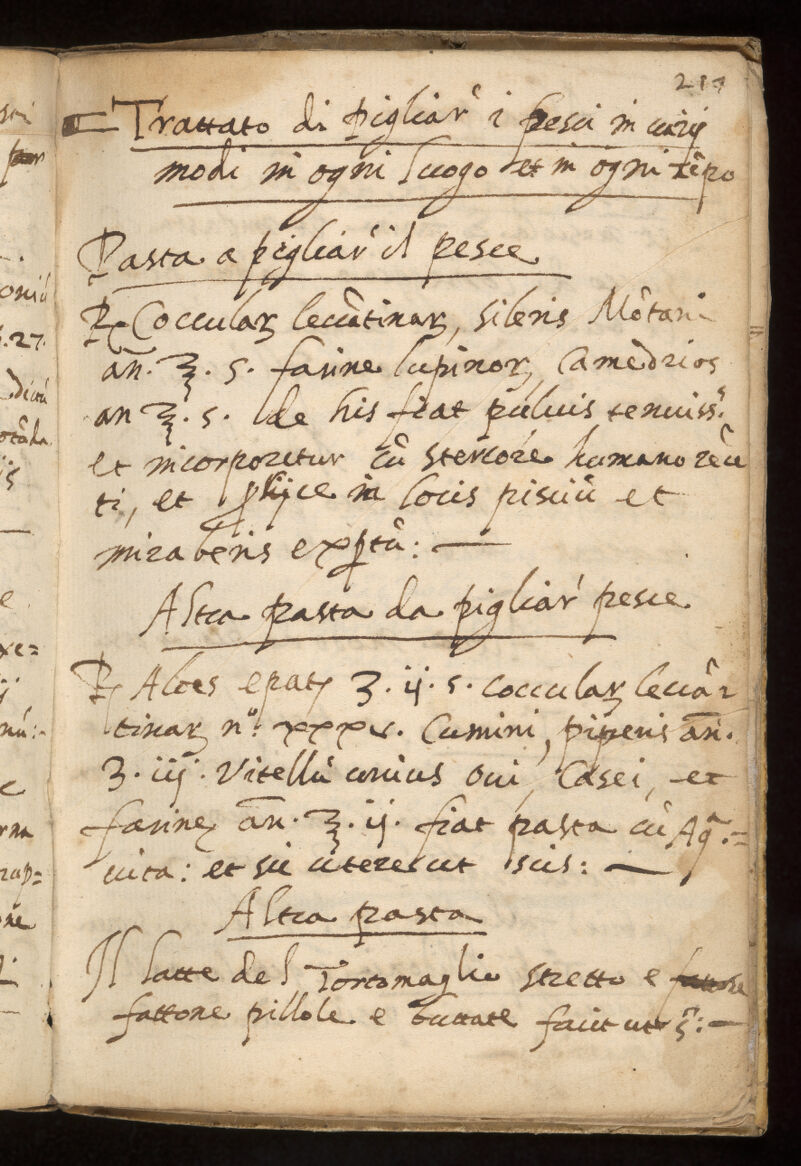 217
Trattato di pigliar' i pesci in varij
modi in ogni luogo et in ogni têpo
Pasta a pigliar' il pesce
℞ Coccularꝝ levâtinarꝝ, sileris Môtani
añ. ℥. s. farine lupinorꝝ, Camedrios
an ℥. s. de his fiat pulvis tenuiss.
et incorporetur cû stercore humano recê
ti, et ꝓijce in locis pisciû et
miraberis exꝑtû: —
Altra pasta da pigliar' pesce
℞ Aloes epat ʒ. ij. s. coccularꝝ levâ
tinarꝝ nº. xxxv. Cumini, piperis añ.
ʒ. iij. Vitellû unius Ovi, Casei, et
farine añ. ℥. ij. fiat pasta cû Aq̃.=
vita: et sic utere ut scis: —
Altra pasta
Il latte del Tortomaglio stretto e
fattone pillole e buttate
onû
.27.
ij
e
xe=
ij
nû:
e
rna
rap=
one